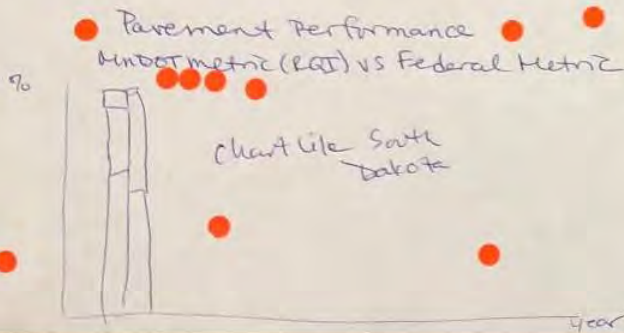 Pavement Performance
MnDOT metric (RQI) VS Federal Metric
%
Chart like South
Dakota
year